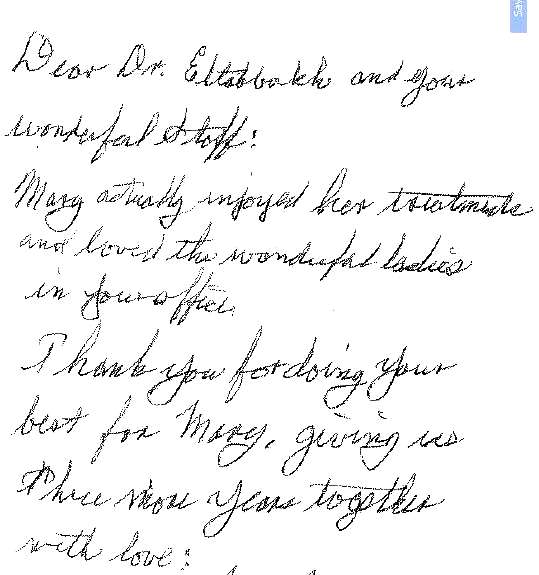 Dear Dr. Eltabbakh and your
wonderful Staff:
Mary actually injoyed her treatments
and loved the wonderful ladies
in your office.
Thank you for doing your
best for Mary, giving us
three more years together
with love: